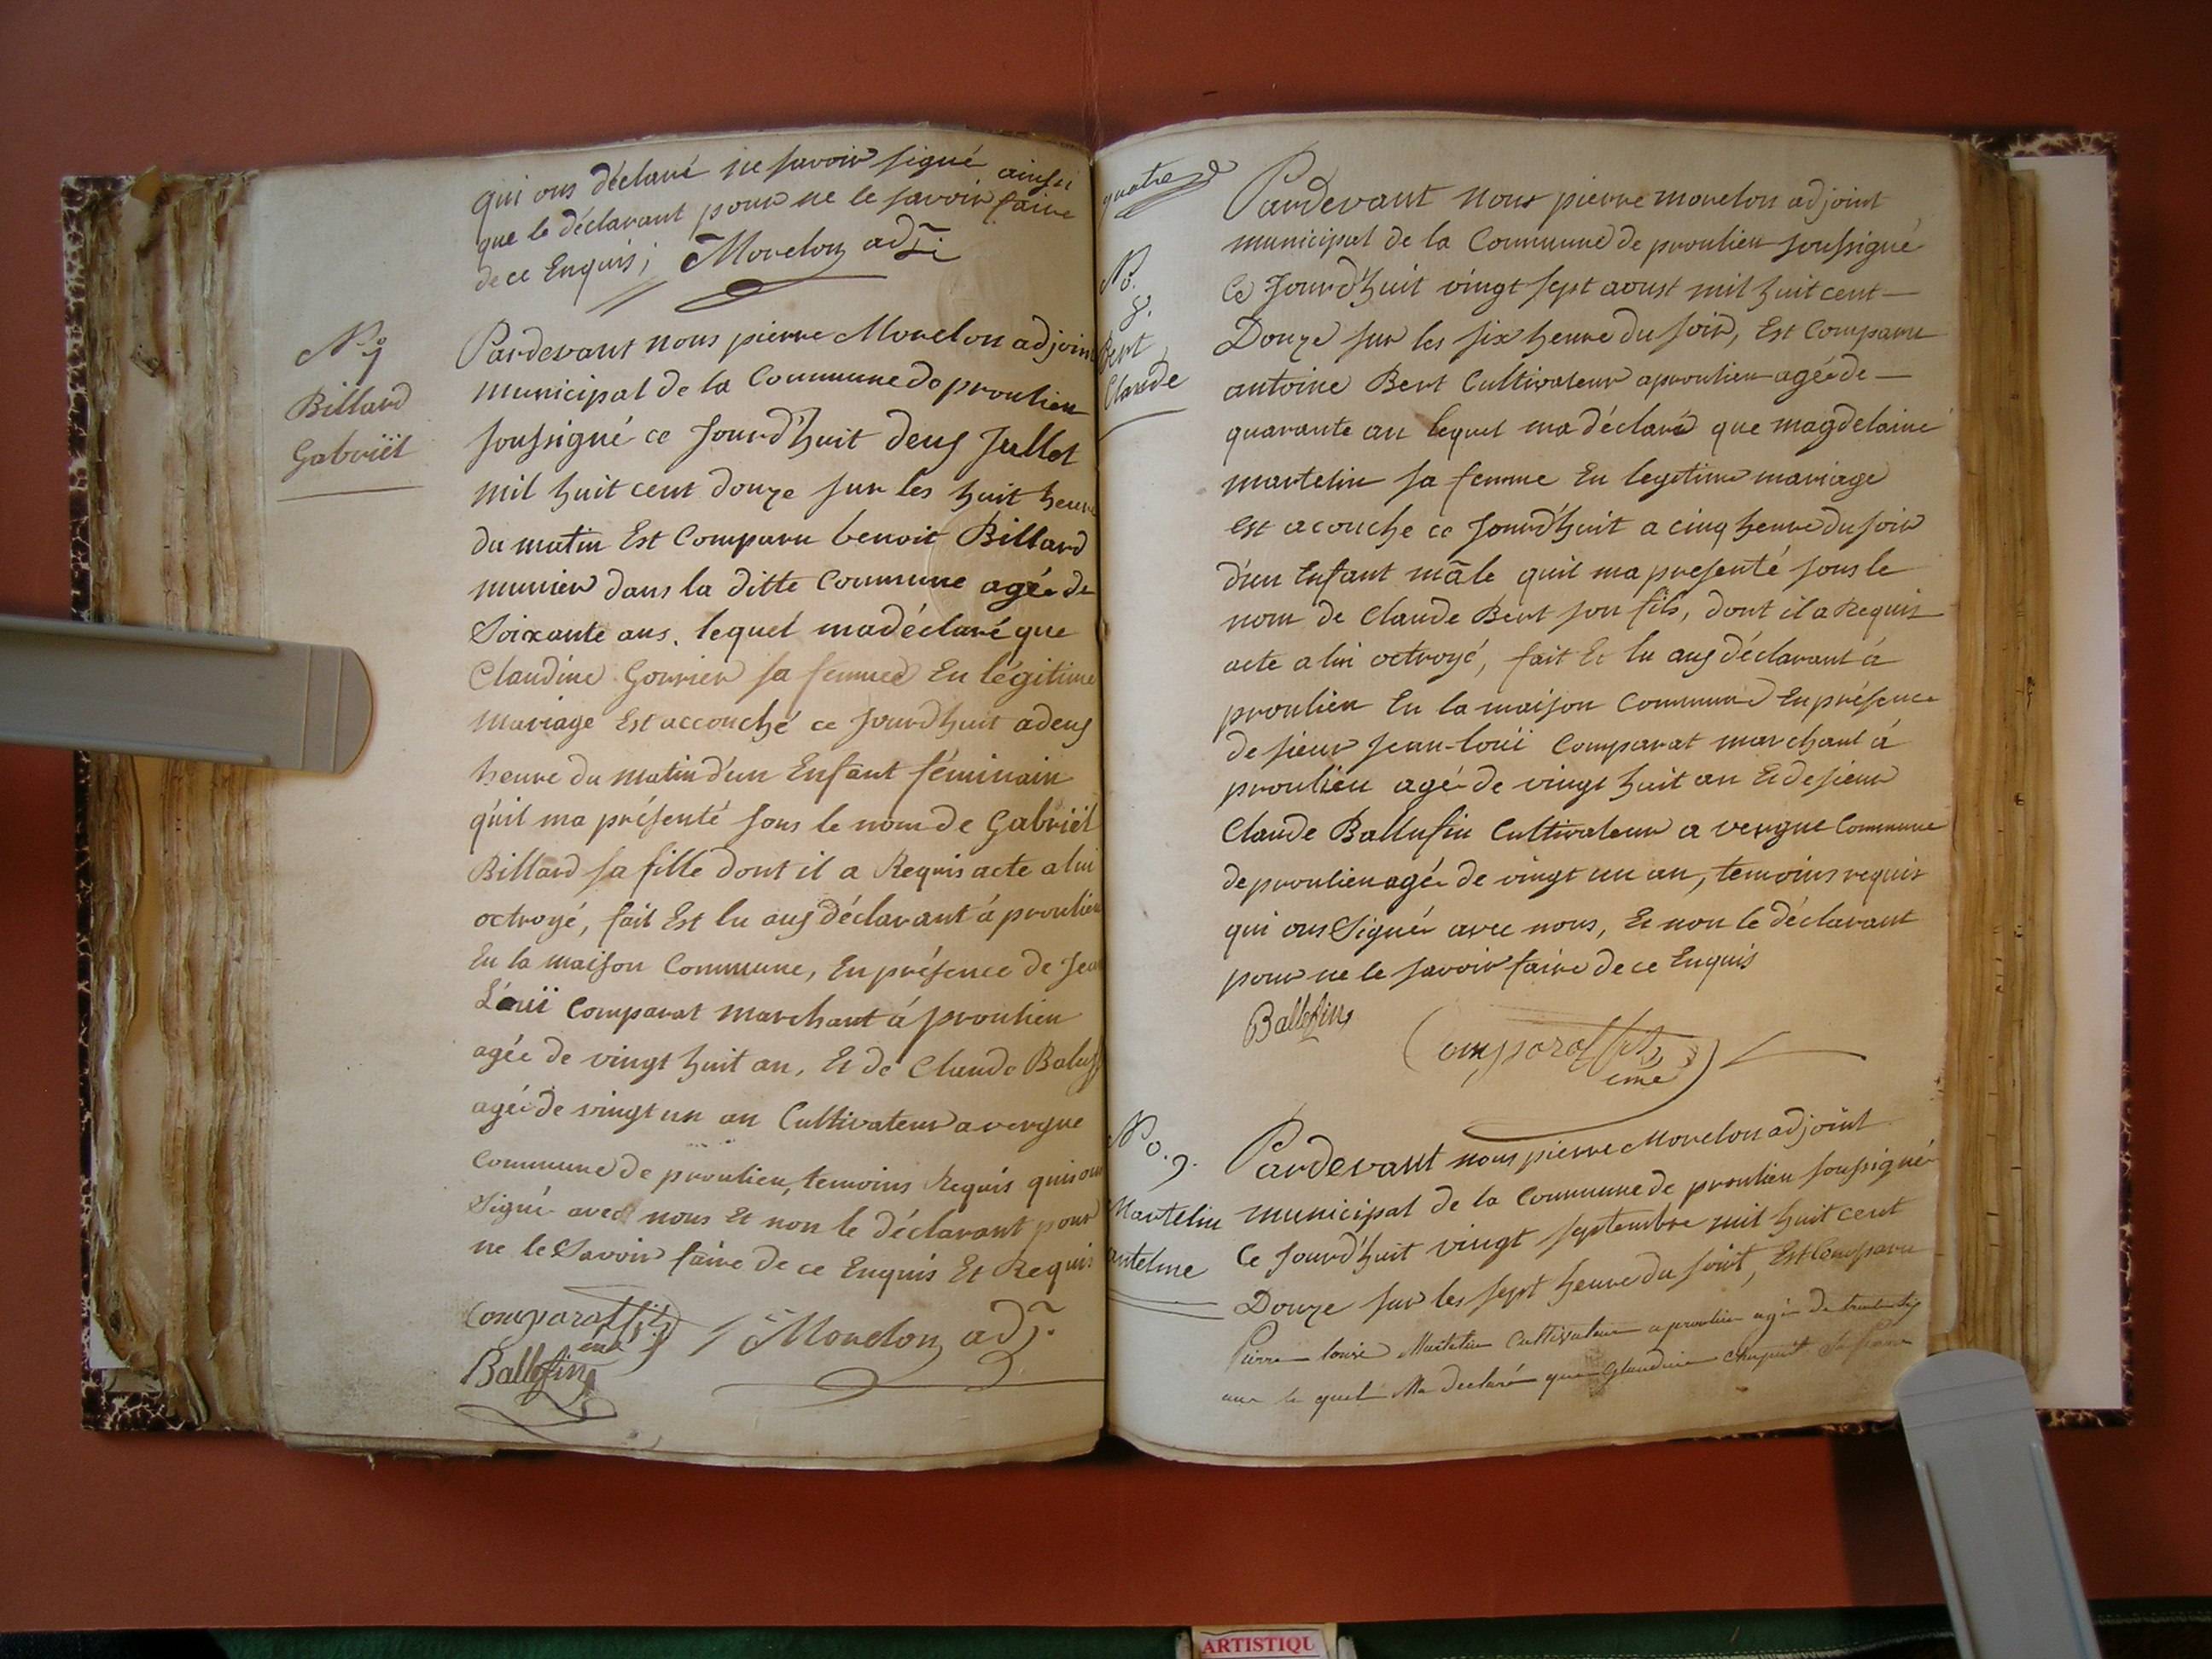 qui ons déclaré ne savoir signé ainsi
que le déclarant pour ne le savoir faire
de ce Enquis; Morelon adj.
N.º 7
Billard
Gabriël
Pardevant nous pierre Morelon adjoint
municipal de la Commune de proulieu
soussigné ce Jourd'huit deux Jullet
mil huit cent douze sur les huit heure
du matin Est Comparu benoit Billard
munier dans la ditte Commune agée de
Soixante ans. lequel ma déclaré que
Claudine Gorrier sa femme En légitime
mariage Est accouché ce jourdhuit a deux
heure du matin d'un Enfant féminain
qu'il ma présenté sous le nom de Gabriël
Billard sa fille dont il a Requis acte a lui
octroyé, fait Est lu aux déclarant á proulieu
En la maison Commune, En présence de Jean
Loüi Comparat marchant á proulieu
agée de vingt huit an, Et de Claude Baluf
agée de vingt un an Cultivateur a vergne
Commune de proulieu, temoins Requis qui ons
Signé avec nous Et non le déclarant pour
ne le Savoir faire de ce Enquis Et Requis
Comparat fils
Ballefin
Morelon adj.
quatre
No.
8.
Bert
Claude
Pardevant nous pierre morelon adjoint
municipal de la Commune de proulieu soussigné
Ce Jourd'huit vingt sept aoust mil huit cent
Douze sur les six heure du soir, Est Comparu
antoine Bert Cultivateur a proulieu agée de
quarante an lequel ma déclaré que magdelaine
martelin sa femme En legitime mariage
est acouche ce Jourd'huit a cinq heure du soir
d'un Enfant mâle quil ma presenté sous le
nom de Claude Bert son fils, dont il a Requis
acte a lui octroyé, fait Et lu aux déclarant á
proulieu En la maison Commune En présence
de sieur Jean-loüi Comparat marchant á
proulieu agée de vingt huit an Et de sieur
Claude Ballufin Cultivateur a vergne Commune
de proulieu agée de vingt un an, temoins requis
qui ons Signée avec nous, Et non le déclarant
pour ne le savoir faire de ce Enquis
Ballefin
Comparat fils
No. 9.
Martelin
antelme
Pardevant nous pierre Morelon adjoint
municipal de la Commune de proulieu soussigné
Ce Jourd'huit vingt septembre mil huit cent
Douze sur les sept heure du soir, Est Comparu
Pierre louise Martelin Cultivateur a proulieu agée de
ans le quel Ma declaré que Glaudine sa femme
ARTISTIQU